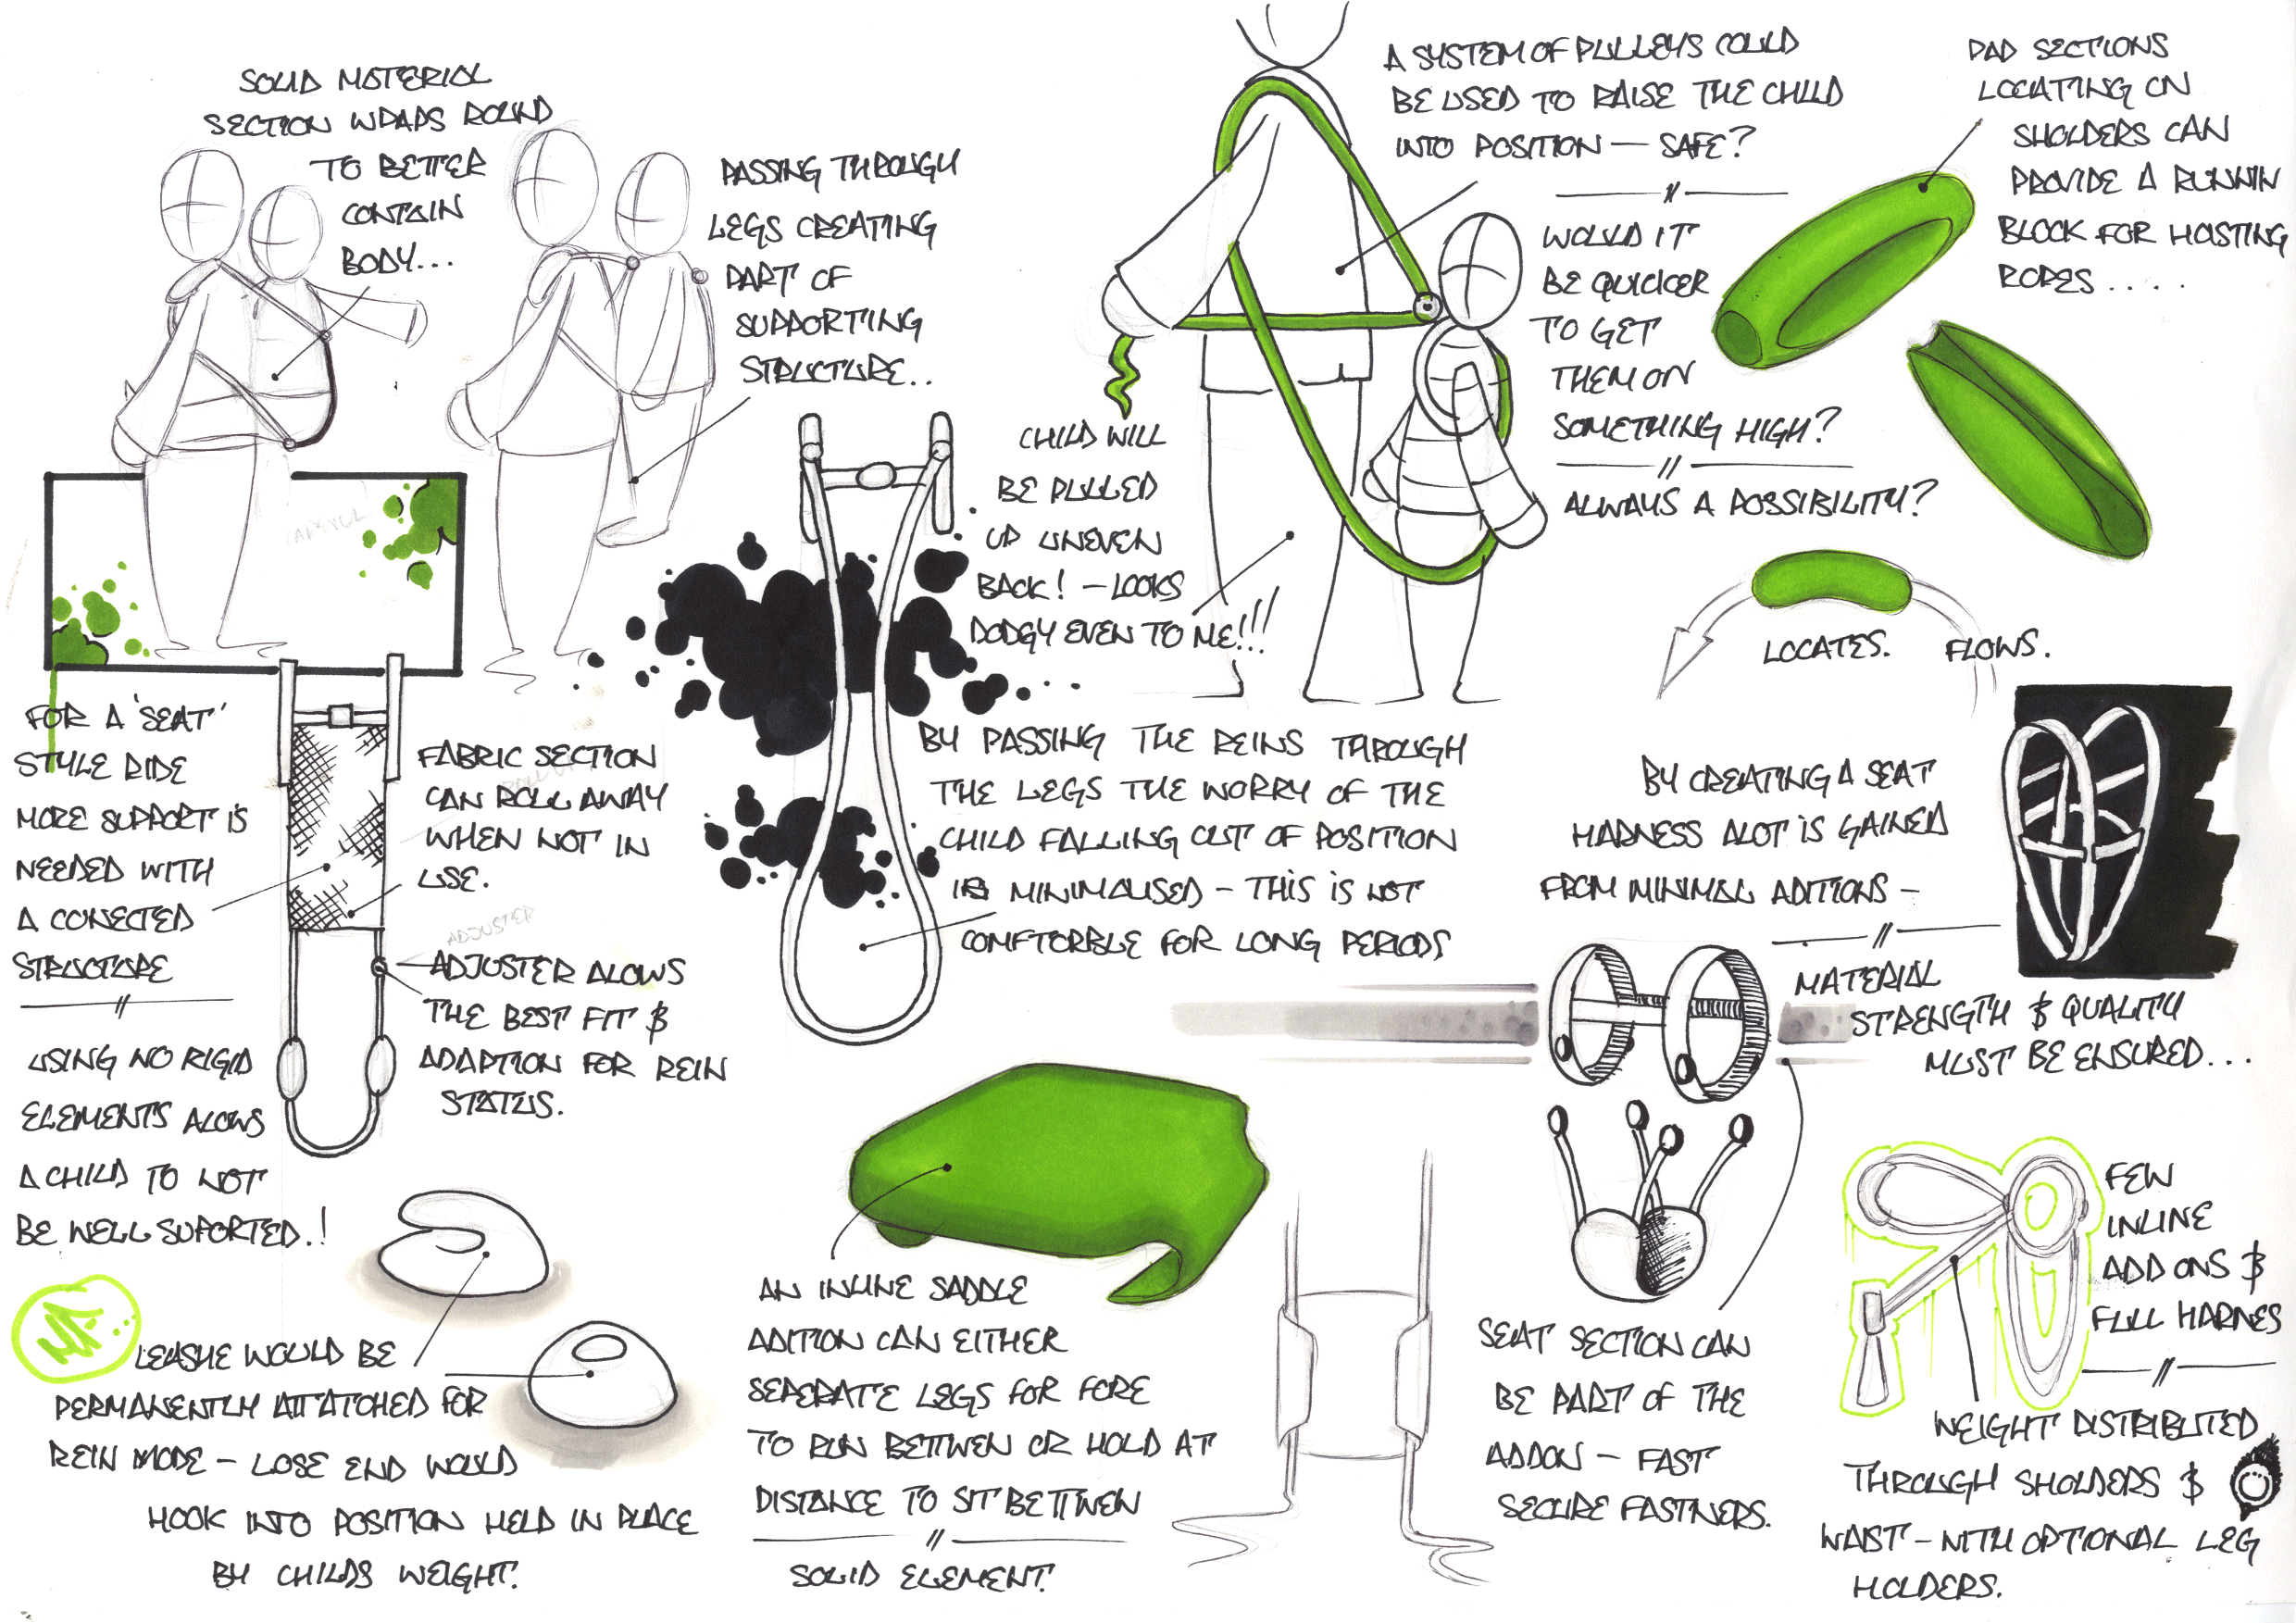 SOLID MATERIAL
SECTION WRAPS ROUND
TO BETTER
CONTAIN
BODY...
PASSING THROUGH
LEGS CREATING
PART OF
SUPPORTING
STRUCTURE..
A SYSTEM OF PULLEYS COULD
BE USED TO RAISE THE CHILD
INTO POSITION — SAFE?
WOULD IT
BE QUICKER
TO GET
THEM ON
SOMETHING HIGH?
ALWAYS A POSSIBILITY?
PAD SECTIONS
LOCATING ON
SHOLDERS CAN
PROVIDE A RUNNIN
BLOCK FOR HOISTING
ROPES....
CHILD WILL
BE PULLED
UP UNEVEN
BACK! — LOOKS
DODGY EVEN TO ME!!!
LOCATES. FLOWS.
FOR A 'SEAT'
STYLE RIDE
MORE SUPPORT IS
NEEDED WITH
A CONECTED
STRUCTURE
USING NO RIGID
ELEMENTS ALOWS
A CHILD TO NOT
BE WELL SUPORTED.!
FABRIC SECTION
CAN ROLL AWAY
WHEN NOT IN
USE.
ADJUSTER
ADJUSTER ALOWS
THE BEST FIT &
ADAPTION FOR REIN
STATUS.
BY PASSING THE REINS THROUGH
THE LEGS THE WORRY OF THE
CHILD FALLING OUT OF POSITION
IS MINIMALISED — THIS IS NOT
COMFTORBLE FOR LONG PERIODS
BY CREATING A SEAT
HARNESS ALOT IS GAINED
FROM MINIMAL ADITIONS —
MATERIAL
STRENGTH & QUALITY
MUST BE ENSURED...
LEASHE WOULD BE
PERMANENTLY ATTATCHED FOR
REIN MODE — LOSE END WOULD
HOOK INTO POSITION HELD IN PLACE
BY CHILDS WEIGHT.
AN INLINE SADDLE
ADITION CAN EITHER
SEPERATE LEGS FOR FORE
TO RUN BETTWEN OR HOLD AT
DISTANCE TO SIT BETTWEN
SOLID ELEMENT.
SEAT SECTION CAN
BE PART OF THE
ADDON — FAST
SECURE FASTNERS.
FEW
INLINE
ADD ONS &
FULL HARNES
WEIGHT DISTRIBUTED
THROUGH SHOLDERS &
WAIST — WITH OPTIONAL LEG
HOLDERS.